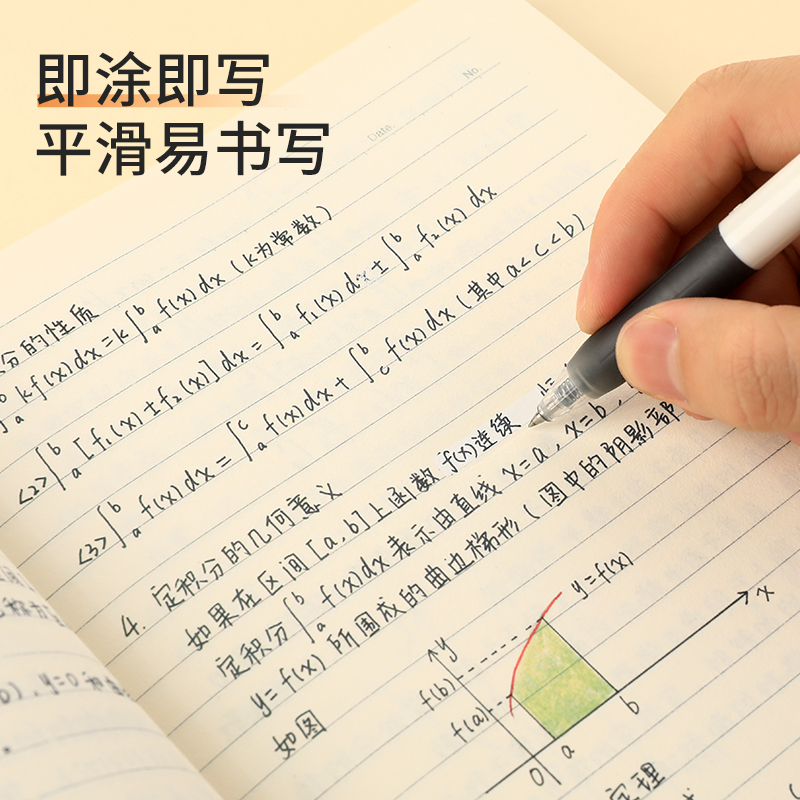 即涂即写
平滑易书写
No.
Date.
分的性质
∫ₐᵇ kf(x)dx=k∫ₐᵇ f(x)dx (k为常数)
<2> ∫ₐᵇ [f₁(x)±f₂(x)]dx=∫ₐᵇ f₁(x)dx±∫ₐᵇ f₂(x)dx
<3> ∫ₐᵇ f(x)dx=∫ₐᶜ f(x)dx+∫꜀ᵇ f(x)dx (其中a<c<b)
4. 定积分的几何意义
如果在区间[a,b]上函数f(x)连续
定积分∫ₐᵇ f(x)dx表示由直线x=a, x=b,
y=f(x)所围成的曲边梯形(图中的阴影部
如图
y
f(b)
f(a)
y=f(x)
x
0
a
b
定理
y=0和